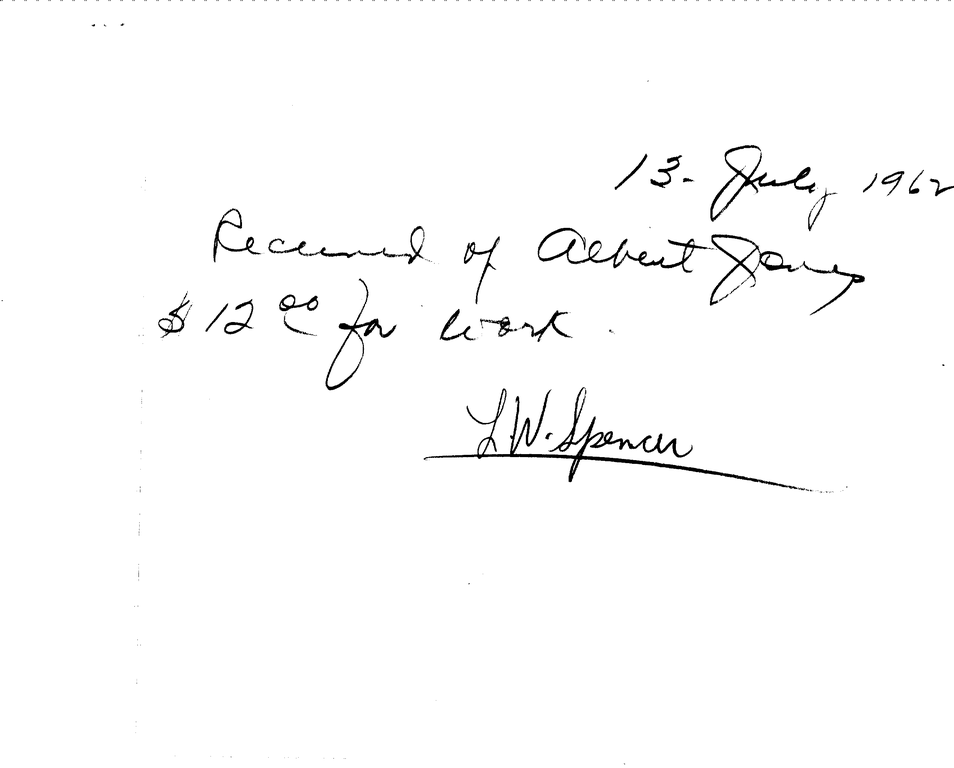 13- July 1962
Received of Albert Jones
$12 00 for work.
L.W. Spencer